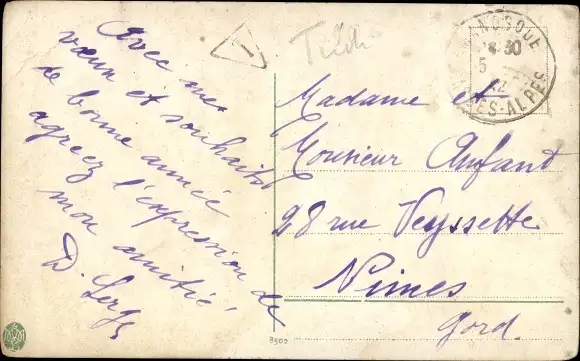 Avec mes
vœux et souhaits
de bonne année
agréez l'expression de
mon amitié.
D.
T
MANOSQUE
30
5
12
ALPES
Madame et
Monsieur Aufant
28 rue Veyssette
Nimes
Gard.
8500